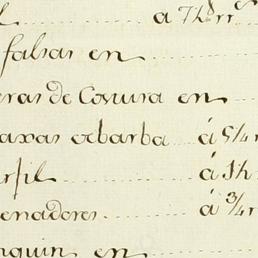 á 7½ rr
falsas en
eras de Costura en
axas obarba á 5¼ r
rfil á 1½
enadores á ¾ r
nquin en